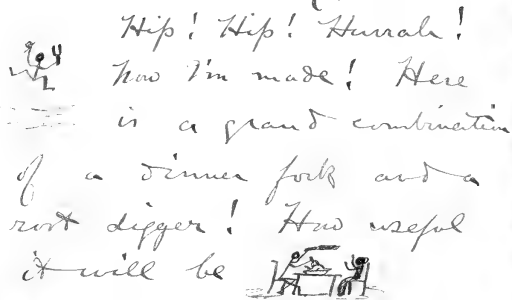 Hip! Hip! Hurrah!
now I'm made! Here
is a grand combination
of a dinner fork and a
root digger! How useful
it will be